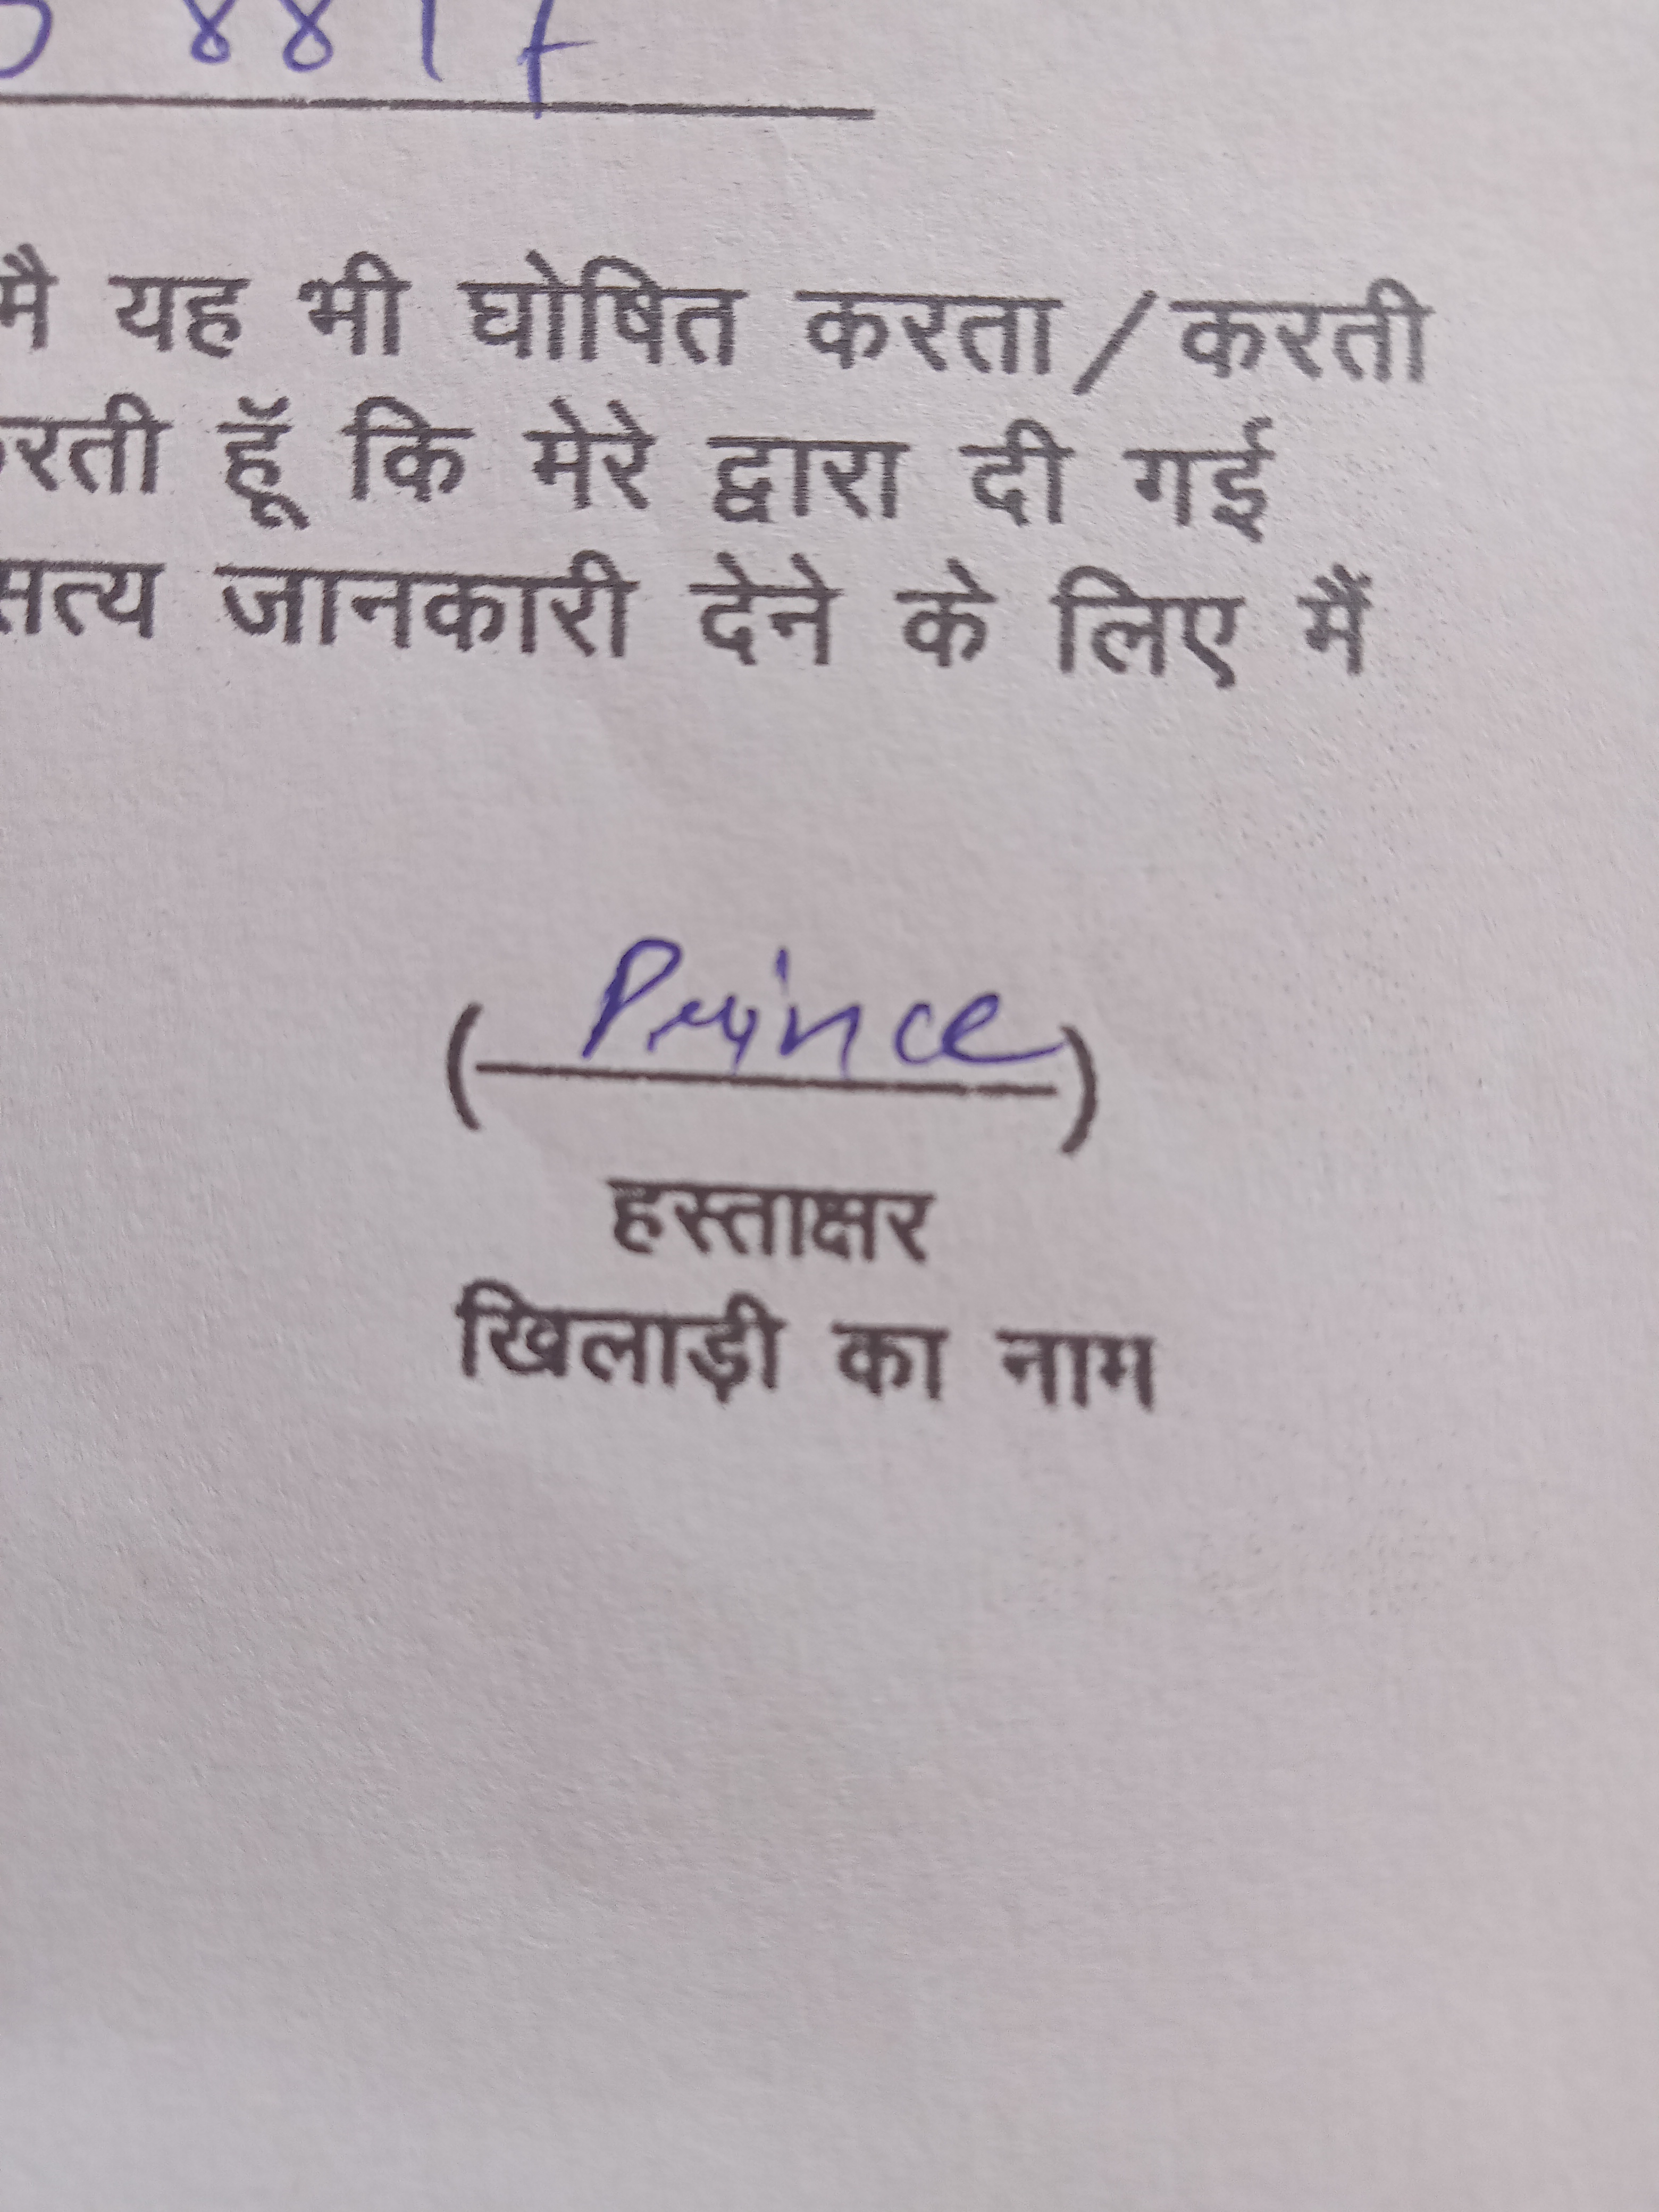 8817
मै यह भी घोषित करता/करती
रती हूॅ कि मेरे द्वारा दी गई
सत्य जानकारी देने के लिए मैं
(Prince)
हस्ताक्षर
खिलाड़ी का नाम